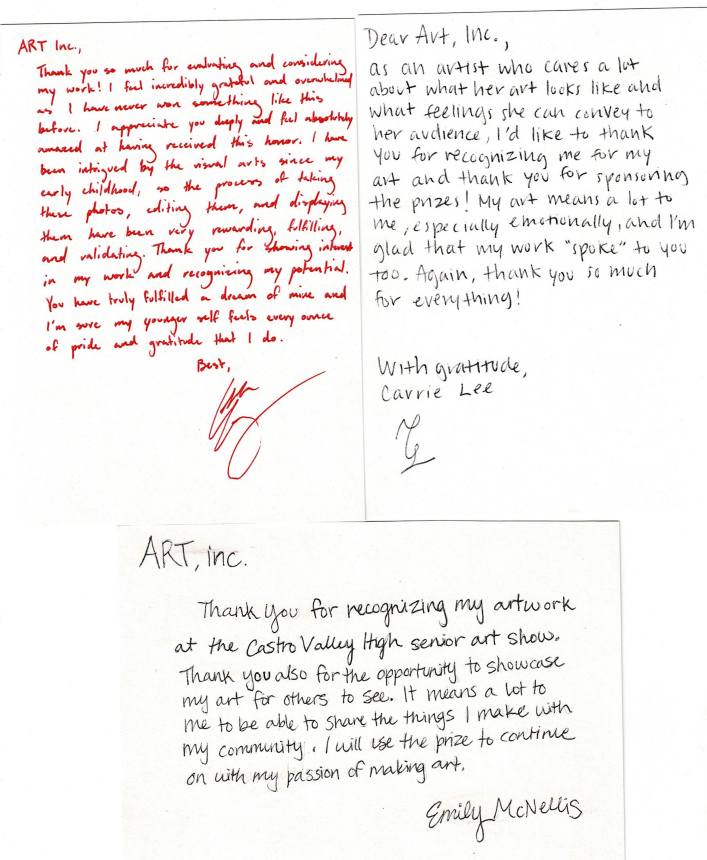 ART Inc.,
Thank you so much for evaluating and considering
my work! I feel incredibly grateful and overwhelmed
as I have never won something like this
before. I appreciate you deeply and feel absolutely
amazed at having received this honor. I have
been intrigued by the visual arts since my
early childhood, so the process of taking
these photos, editing them, and displaying
them have been very rewarding, fulfilling,
and validating. Thank you for showing interest
in my work and recognizing my potential.
You have truly fulfilled a dream of mine and
I'm sure my younger self feels every ounce
of pride and gratitude that I do.
Best,
Dear Art, Inc.,
as an artist who cares a lot
about what her art looks like and
what feelings she can convey to
her audience, I'd like to thank
you for recognizing me for my
art and thank you for sponsoring
the prizes! My art means a lot to
me, especially emotionally, and I'm
glad that my work "spoke" to you
too. Again, thank you so much
for everything!
With gratitude,
Carrie Lee
ART, inc.
Thank you for recognizing my artwork
at the Castro Valley High senior art show.
Thank you also for the opportunity to showcase
my art for others to see. It means a lot to
me to be able to share the things I make with
my community. I will use the prize to continue
on with my passion of making art.
Emily McNellis